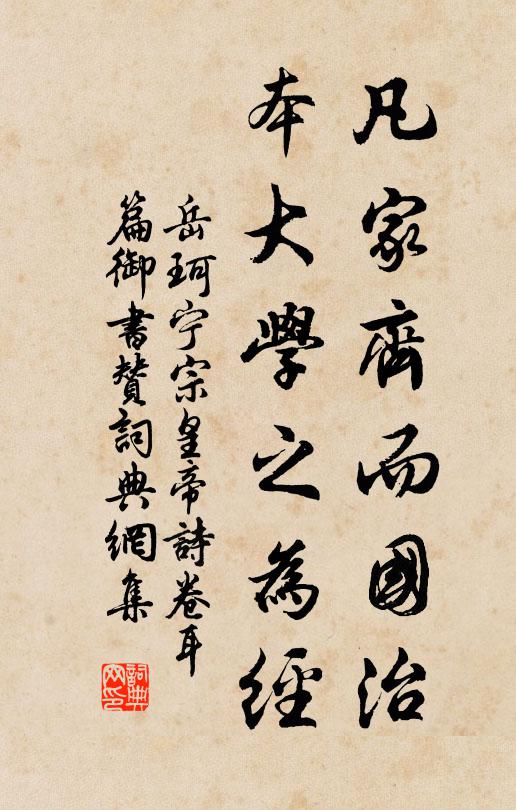 凡家齊而國治
本大學之為經
岳珂宁宗皇帝詩卷耳
篇御書贊詞典網集
詞典网印